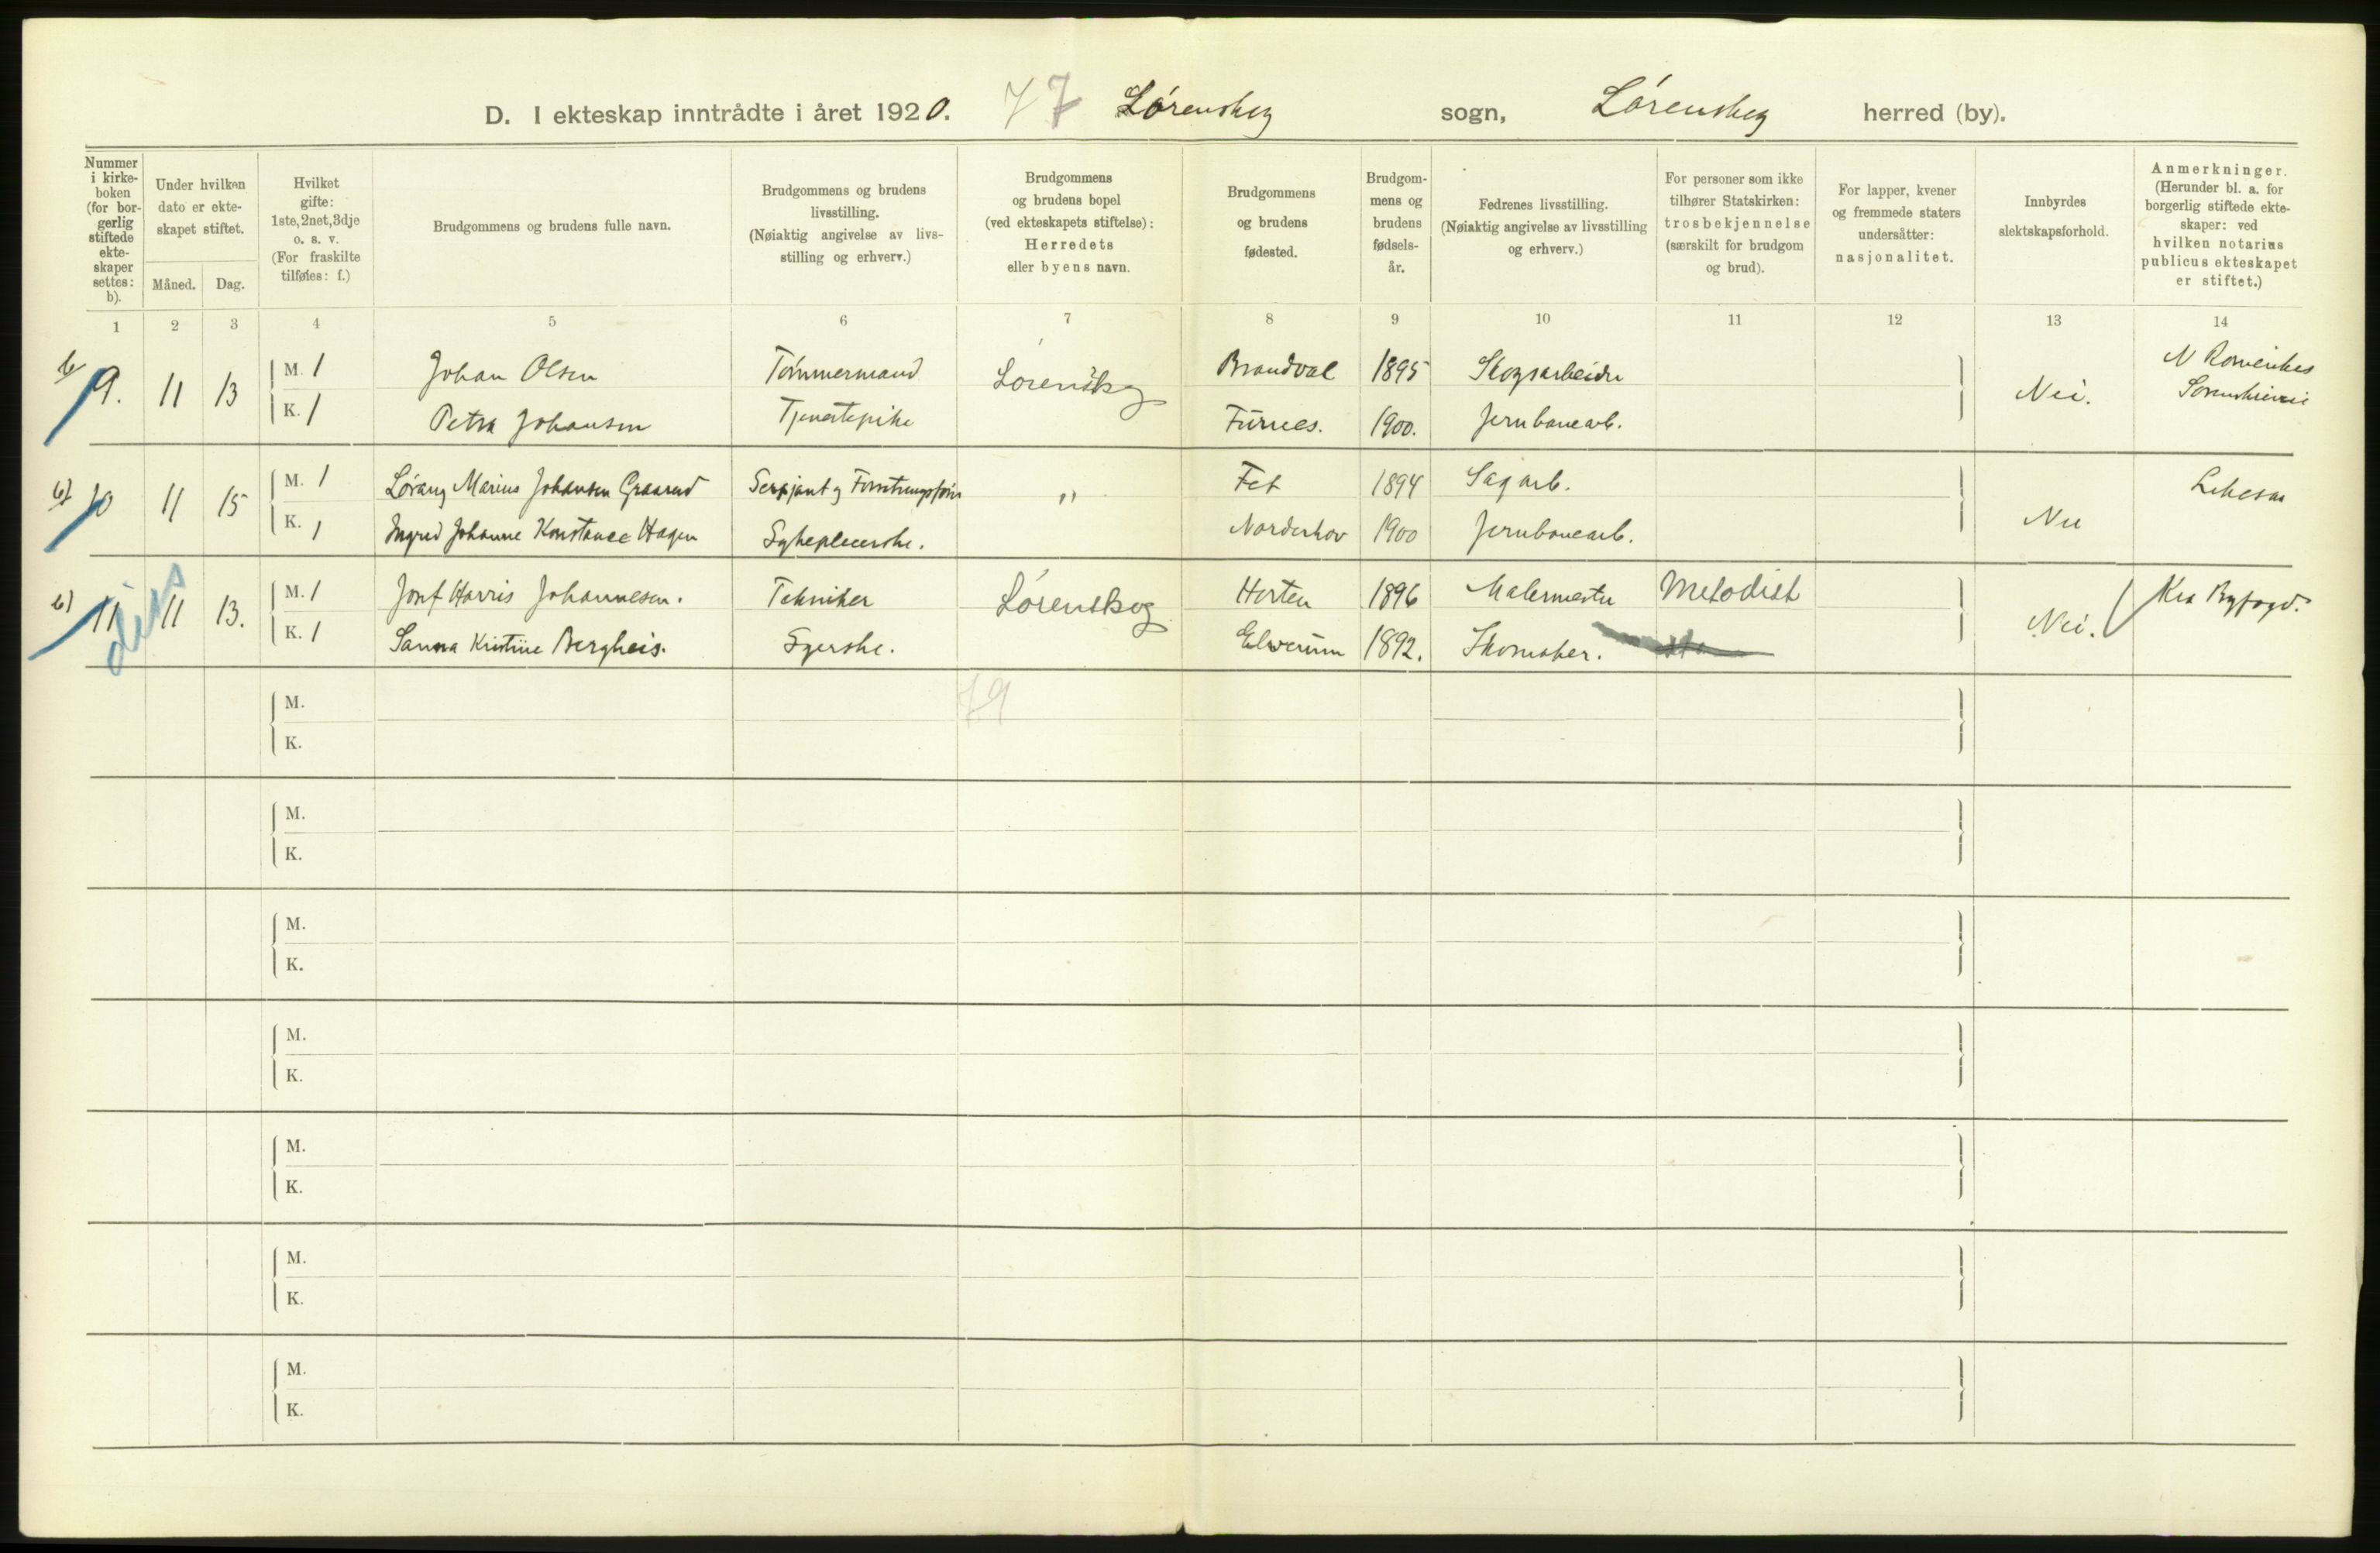 D. I ekteskap inntrådte i året 1920. 77 Lørenskog sogn, Lørenskog herred (by).
Nummer i kirkeboken (for borgerlig stiftede ekteskaper settes: b).
Under hvilken dato er ekteskapet stiftet.
Måned. Dag.
Hvilket gifte: 1ste, 2net, 3dje o. s. v. (For fraskilte tilføies: f.)
Brudgommens og brudens fulle navn.
Brudgommens og brudens livsstilling. (Nøiaktig angivelse av livsstilling og erhverv.)
Brudgommens og brudens bopel (ved ekteskapets stiftelse): Herredets eller byens navn.
Brudgommens og brudens fødested.
Brudgommens og brudens fødselsår.
Fedrenes livsstilling. (Nøiaktig angivelse av livsstilling og erhverv.)
For personer som ikke tilhører Statskirken: trosbekjennelse (særskilt for brudgom og brud).
For lapper, kvener og fremmede staters undersåtter: nasjonalitet.
Innbyrdes slektskapsforhold.
Anmerkninger. (Herunder bl. a. for borgerlig stiftede ekteskaper: ved hvilken notarius publicus ekteskapet er stiftet.)
1 2 3 4 5 6 7 8 9 10 11 12 13 14
b) 9. 11 13 M. 1 Johan Olsen Tømmermand Lørenskog Brandval 1895 Skogsarbeider Nei. N Romerikes Sorenskriveri
K. 1 Petra Johansen Tjenestepike Furnes. 1900. Jernbanearb.
b) 10 11 15 M. 1 Lørang Marius Johansen Graarud Serjant og " Fet 1894 Sagarb. Nei
K. 1 Ingrid Johanne Konstance Hagen Sykepleierske. Norderhov 1900 Jernbanearb.
b) 11 11 13. M. 1 Josef Harris Johannesen. Tekniker Lørenskog Horten 1896 Malermester Metodist Nei. Kra Byfogd.
K. 1 Sanna Kristine Bergheis. Syerske. Elverum 1892. Skomaker.
79
M.
K.
M.
K.
M.
K.
M.
K.
M.
K.
M.
K.
M.
K.